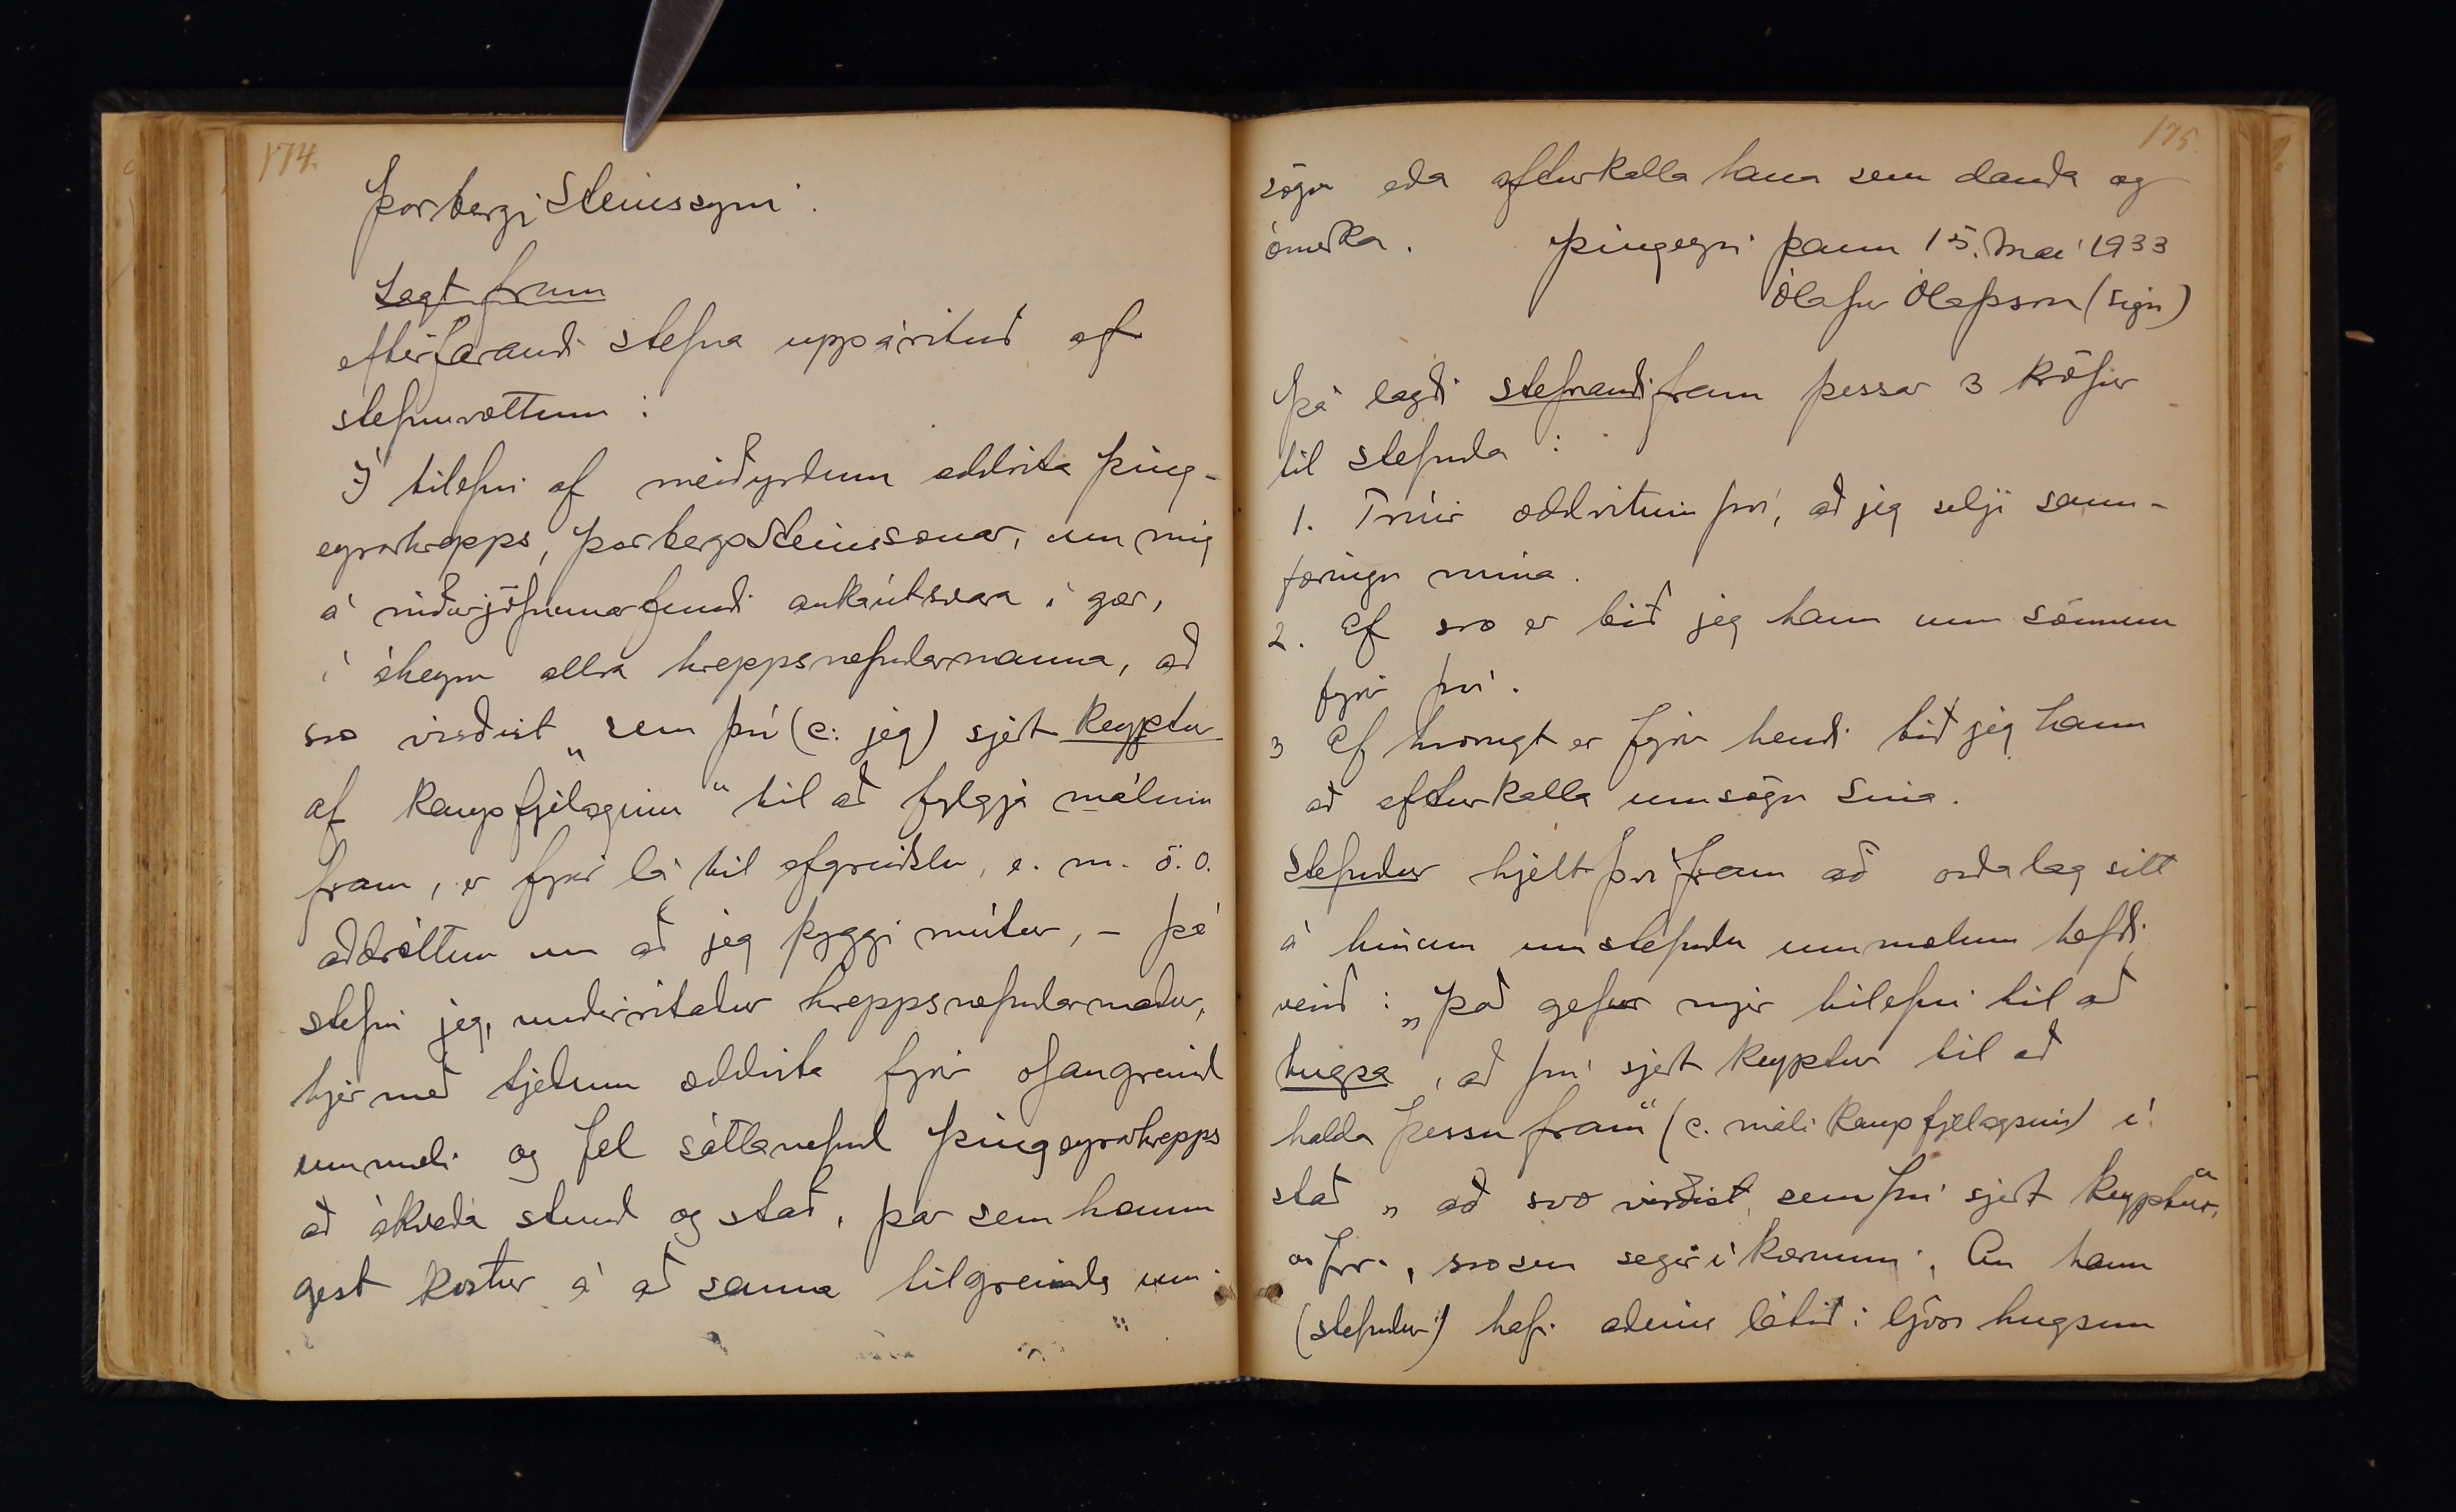 174.
Þorbergi Steinssyni.
Lagt fram
eftirfarandi stefna uppárituð af
stefnuvottum:
Í tilefni af meiðyrðum oddvita Þing-
eyrarhrepps, Þorbergs Steinssonar, um mig
á niðurjöfnunarfundi aukaútsvara í gær,
í áheyrn allra hreppsnefndarmanna, að
svo virðist „sem þú (c: jeg) sjert keyptur
af Kaupfjelaginu“ til að fylgja málum
fram, er fyrir lá til afgreiðslu, e. m. ö. o.
aðdróttun um að jeg þyggi mútur, - þá
stefni jeg, undirritaður hreppsnefndarmaður,
hjer með tjeðum oddvita fyrir ofangreind
ummæli og fel sáttanefnd Þingeyrarhrepps
að ákveða stund og stað, þar sem honum
gest kostur á að sanna tilgreinda um-
175.
sögn eða afturkalla hana sem dauða og
ómerka. Þingeyri þann 15. Maí 1933
Ólafur Ólafsson (sign)
Þá lagði stefnandi fram þessar 3 kröfur
til stefnda:
1. Trúir oddvitinn því, að jeg selji sann-
færingu mína.
2. Ef svo er bið jeg hann um sönnun
fyrir því.
3 Ef hvorugt er fyrir hendi bið jeg hann
að afturkalla umsögn sína.
Stefndur hjelt því fram að orðalag sitt
á hinum umstefndu ummælum hefði
verið: „Það gefur mjer tilefni til að
hugsa, að þú sjert keyptur til að
halda þessu fram“ (c. máli Kaupfjelagsins) í
stað „að svo virðist, sem þú sjert keyptur“
o.s.frv., svo sem segir í kærunni. En hann
(stefndur) hafi aðeins látið í ljós hugsun